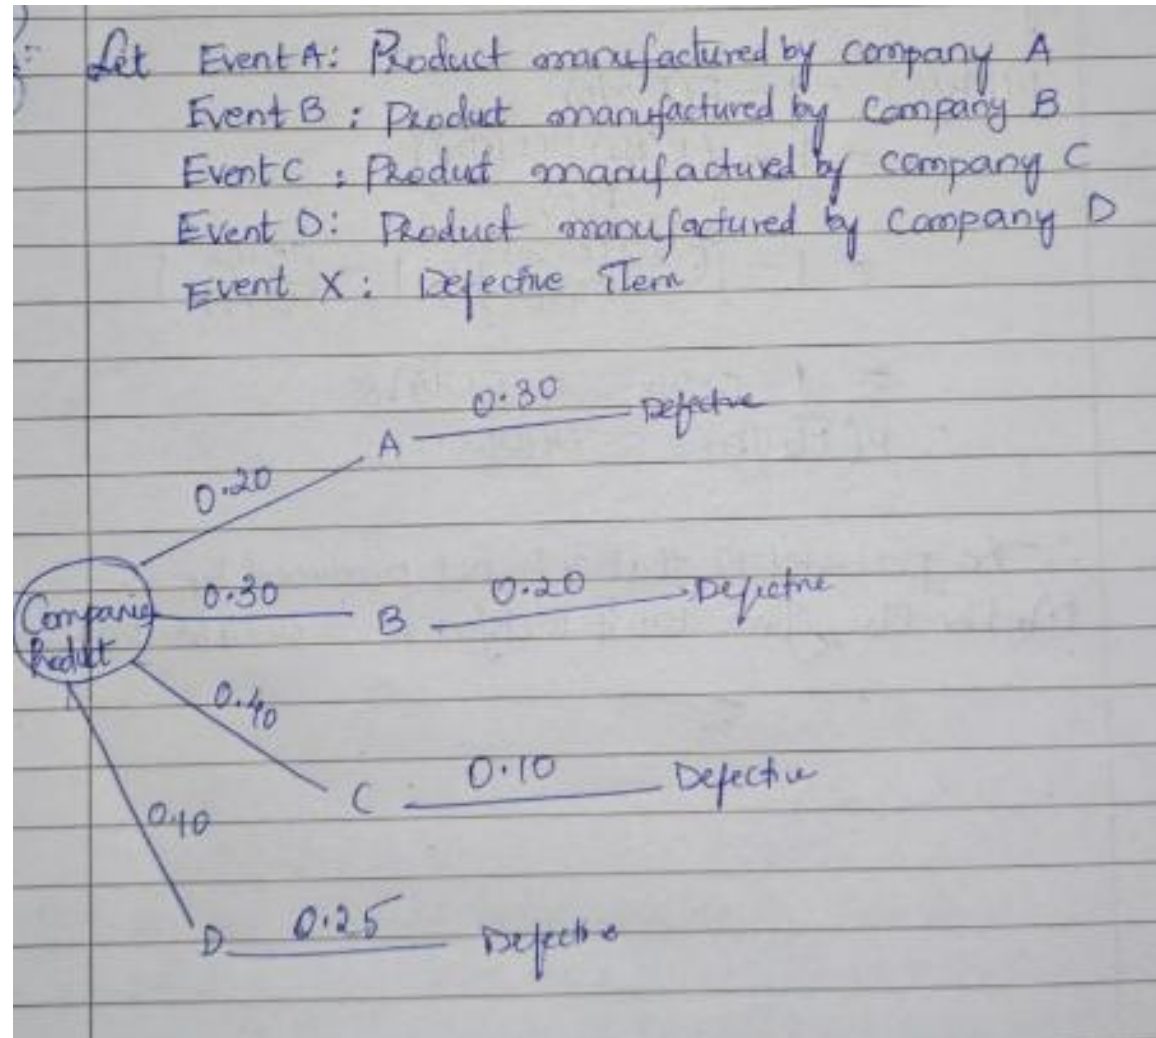 Let Event A: Product manufactured by company A
Event B : Product manufactured by Company B
Event C : Product manufactured by company C
Event D: Product manufactured by Company D
Event X : Defective item
0.30 Defective
A
0.20
0.30 B 0.20 Defective
Companies
Product
0.40
0.10 Defective
C
0.10
D 0.25 Defective